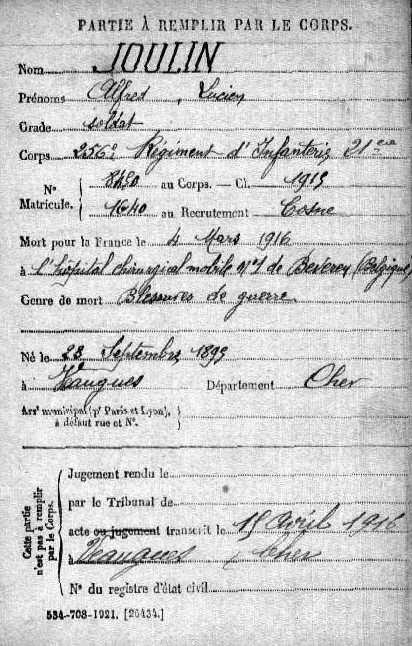 PARTIE À REMPLIR PAR LE CORPS.
Nom JOULIN
Prénoms Alfred, Lucien
Grade soldat
Corps 256e Régiment d'Infanterie 21
N° Matricule. { 8450 au Corps. — Cl. 1913
1640 au Recrutement Cosne
Mort pour la France le 4 Mars 1916
à L'hôpital chirurgical mobile n°1 de Beveren (Belgique)
Genre de mort Blessures de guerre
Né le 28 Septembre 1893
à Veaugues Département Cher
Arrt municipal (pr Paris et Lyon), à défaut rue et N°. }
Cette partie n'est pas à remplir par le Corps.
Jugement rendu le
par le Tribunal de
acte ou jugement transcrit le 15 Avril 1916
à Veaugues, Cher
N° du registre d'état civil
534-708-1921. [26434.]